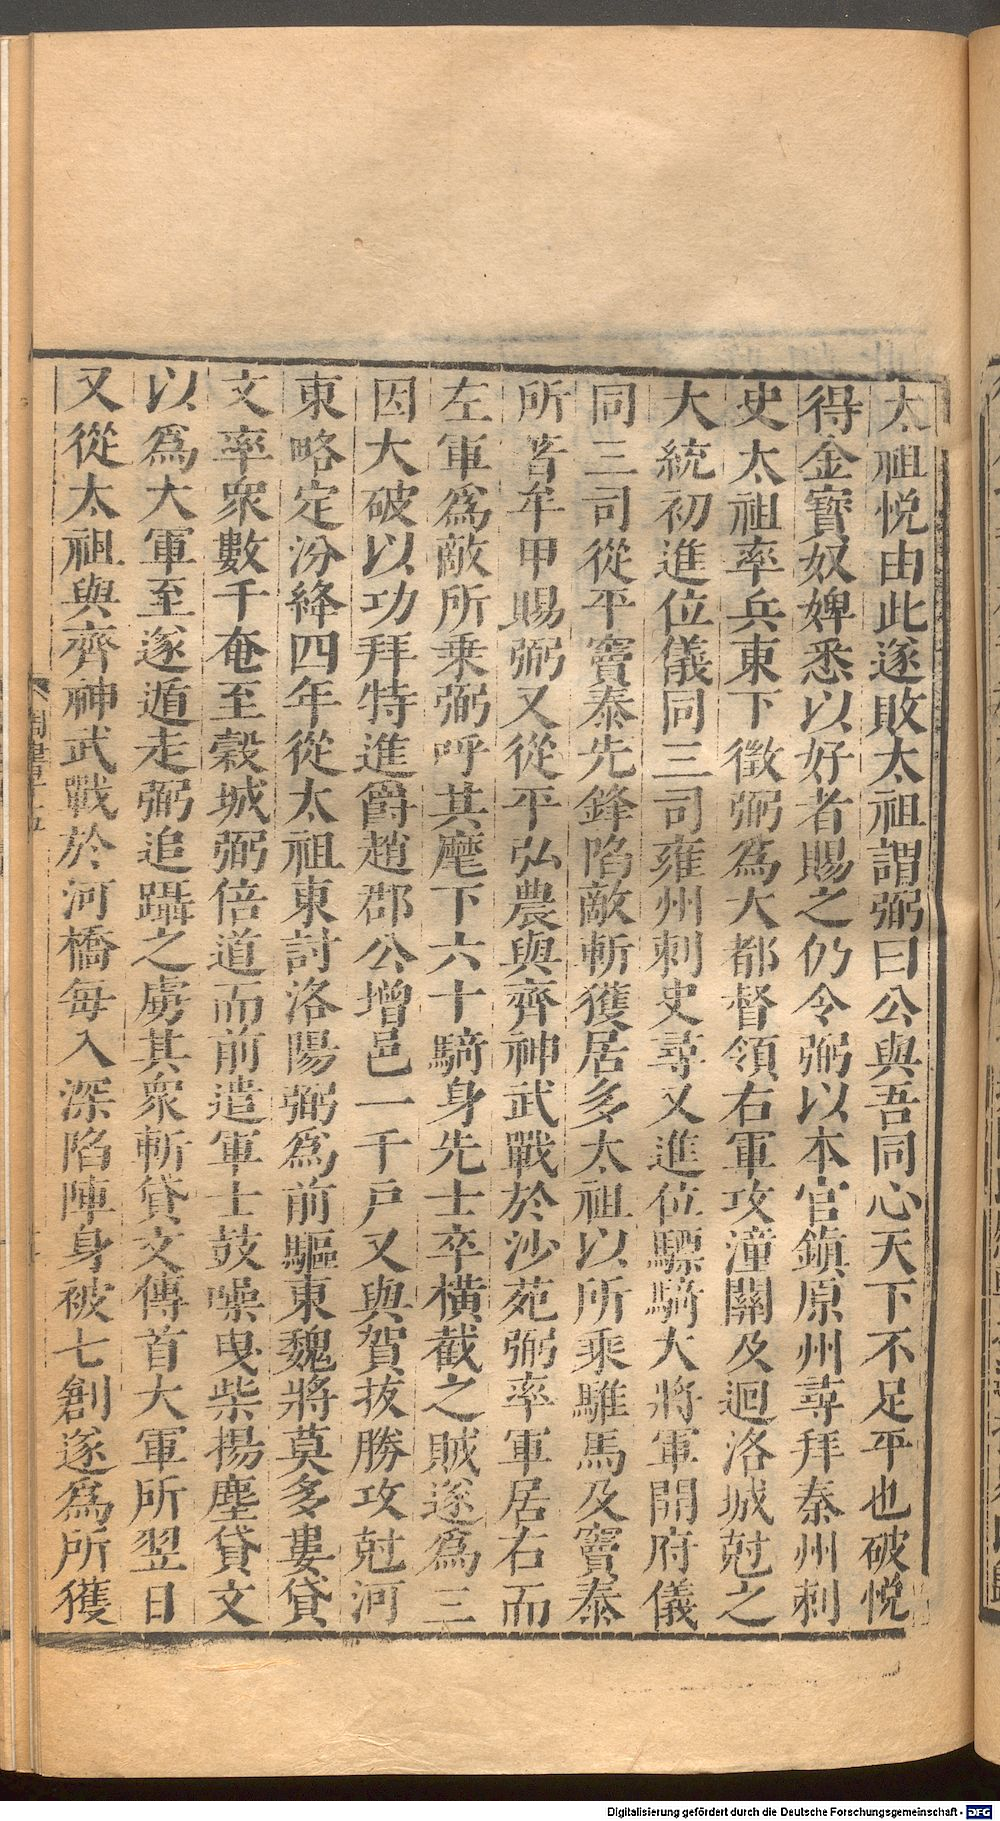 太祖悅由此遂敗太祖謂弼曰公與吾同心天下不足平也破悅
得金寶奴婢悉以好者賜之仍令弼以本官鎮原州尋拜秦州刺
史太祖率兵東下徵弼爲大都督領右軍攻潼關及迴洛城尅之
大統初進位儀同三司雍州刺史尋又進位驃騎大將軍開府儀
同三司從平竇泰先鋒陷敵斬獲居多太祖以所乘騅馬及竇泰
所着牟甲賜弼又從平弘農與齊神武戰於沙苑弼率軍居右而
左軍爲敵所乗弼呼其麾下六十騎身先士卒橫截之賊遂爲三
因大破以功拜特進爵趙郡公增邑一千戶又與賀拔勝攻尅河
東略定汾絳四年從太祖東討洛陽弼爲前驅東魏將莫多婁貸
文率衆數千奄至穀城弼倍道而前遣軍士鼓噪曳柴揚塵貸文
以爲大軍至遂遁走弼追躡之虜其衆斬貸文傳首大軍所翌日
又從太祖與齊神武戰於河橋每入深陷陣身被七創遂爲所獲
Digitalisierung gefördert durch die Deutsche Forschungsgemeinschaft - DFG